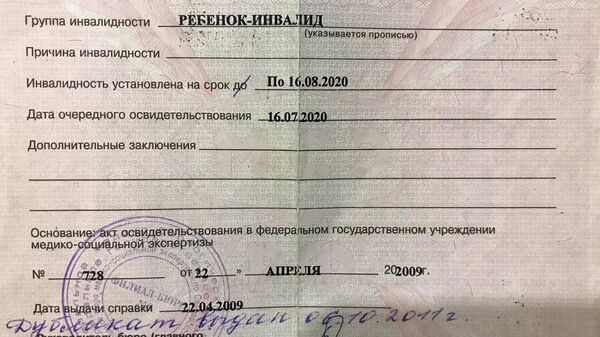 Группа инвалидности РЕБЕНОК-ИНВАЛИД
(указывается прописью)
Причина инвалидности
Инвалидность установлена на срок до По 16.08.2020
Дата очередного освидетельствования 16.07.2020
Дополнительные заключения
Основание: акт освидетельствования в федеральном государственном учреждении
медико-социальной экспертизы
№ 728 от 22 » АПРЕЛЯ 20 2009г.
ФИЛИАЛ-БЮРО
Дата выдачи справки 22.04.2009
Дубликат выдан 06.10.2011г.